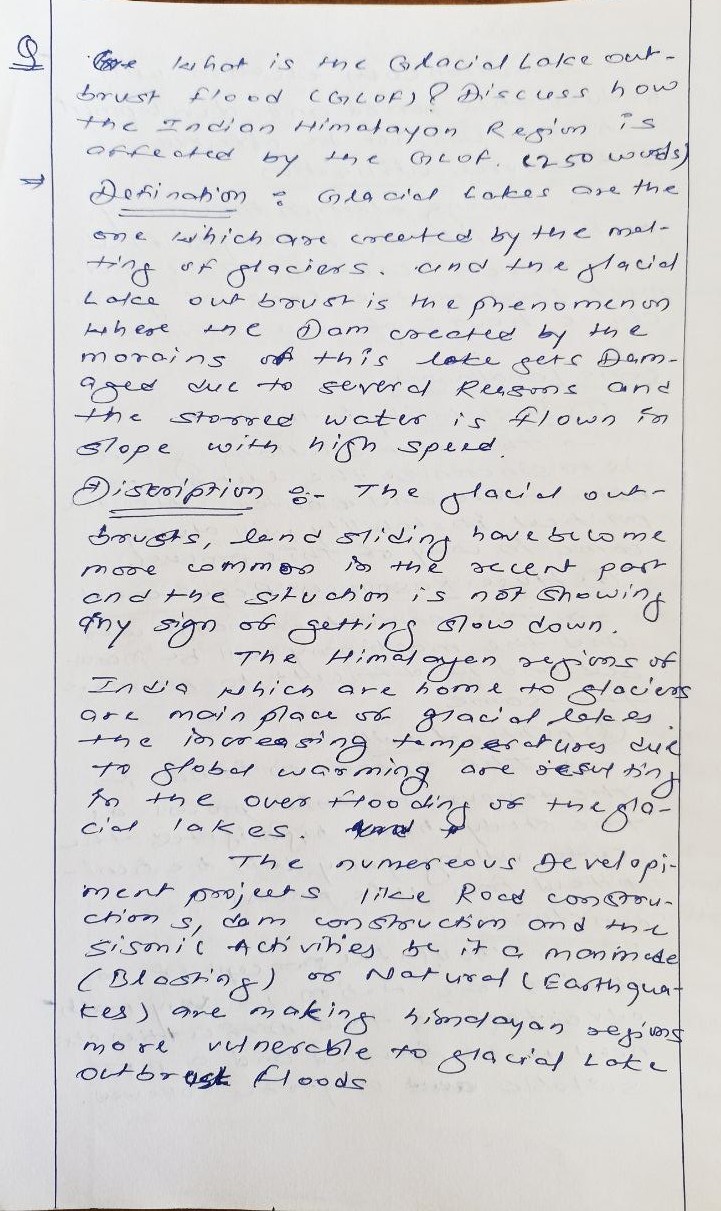 Q What is the Glacial Lake out-
brust flood (GLOF)? Discuss how
the Indian Himalayan Region is
affected by the GLOF. (250 words)
→ Defination : Glacial Lakes are the
one which are created by the mel-
ting of glaciers. and the glacial
Lake out brust is the phenomenon
where the Dam created by the
morains of this lake gets Dam-
aged due to several Reasons and
the storred water is flown in
slope with high speed.
Discription :- The glacial out-
brusts, land sliding have become
more common in the recent past
and the situation is not showing
any sign of getting slow down.
The Himalayen regions of
India which are home to glaciers
are main place of glacial lakes.
the increasing temperatures due
to global warming are resulting
in the over flooding of the gla-
cial lakes.
The numereous Developi-
ment projects like Road constru-
ction s, dam construction and the
sismic Activities be it a manmade
(Blasting) or Natural (Earthqua-
kes) are making himalayan regions
more vulnerable to glacial Lake
outbrust floods